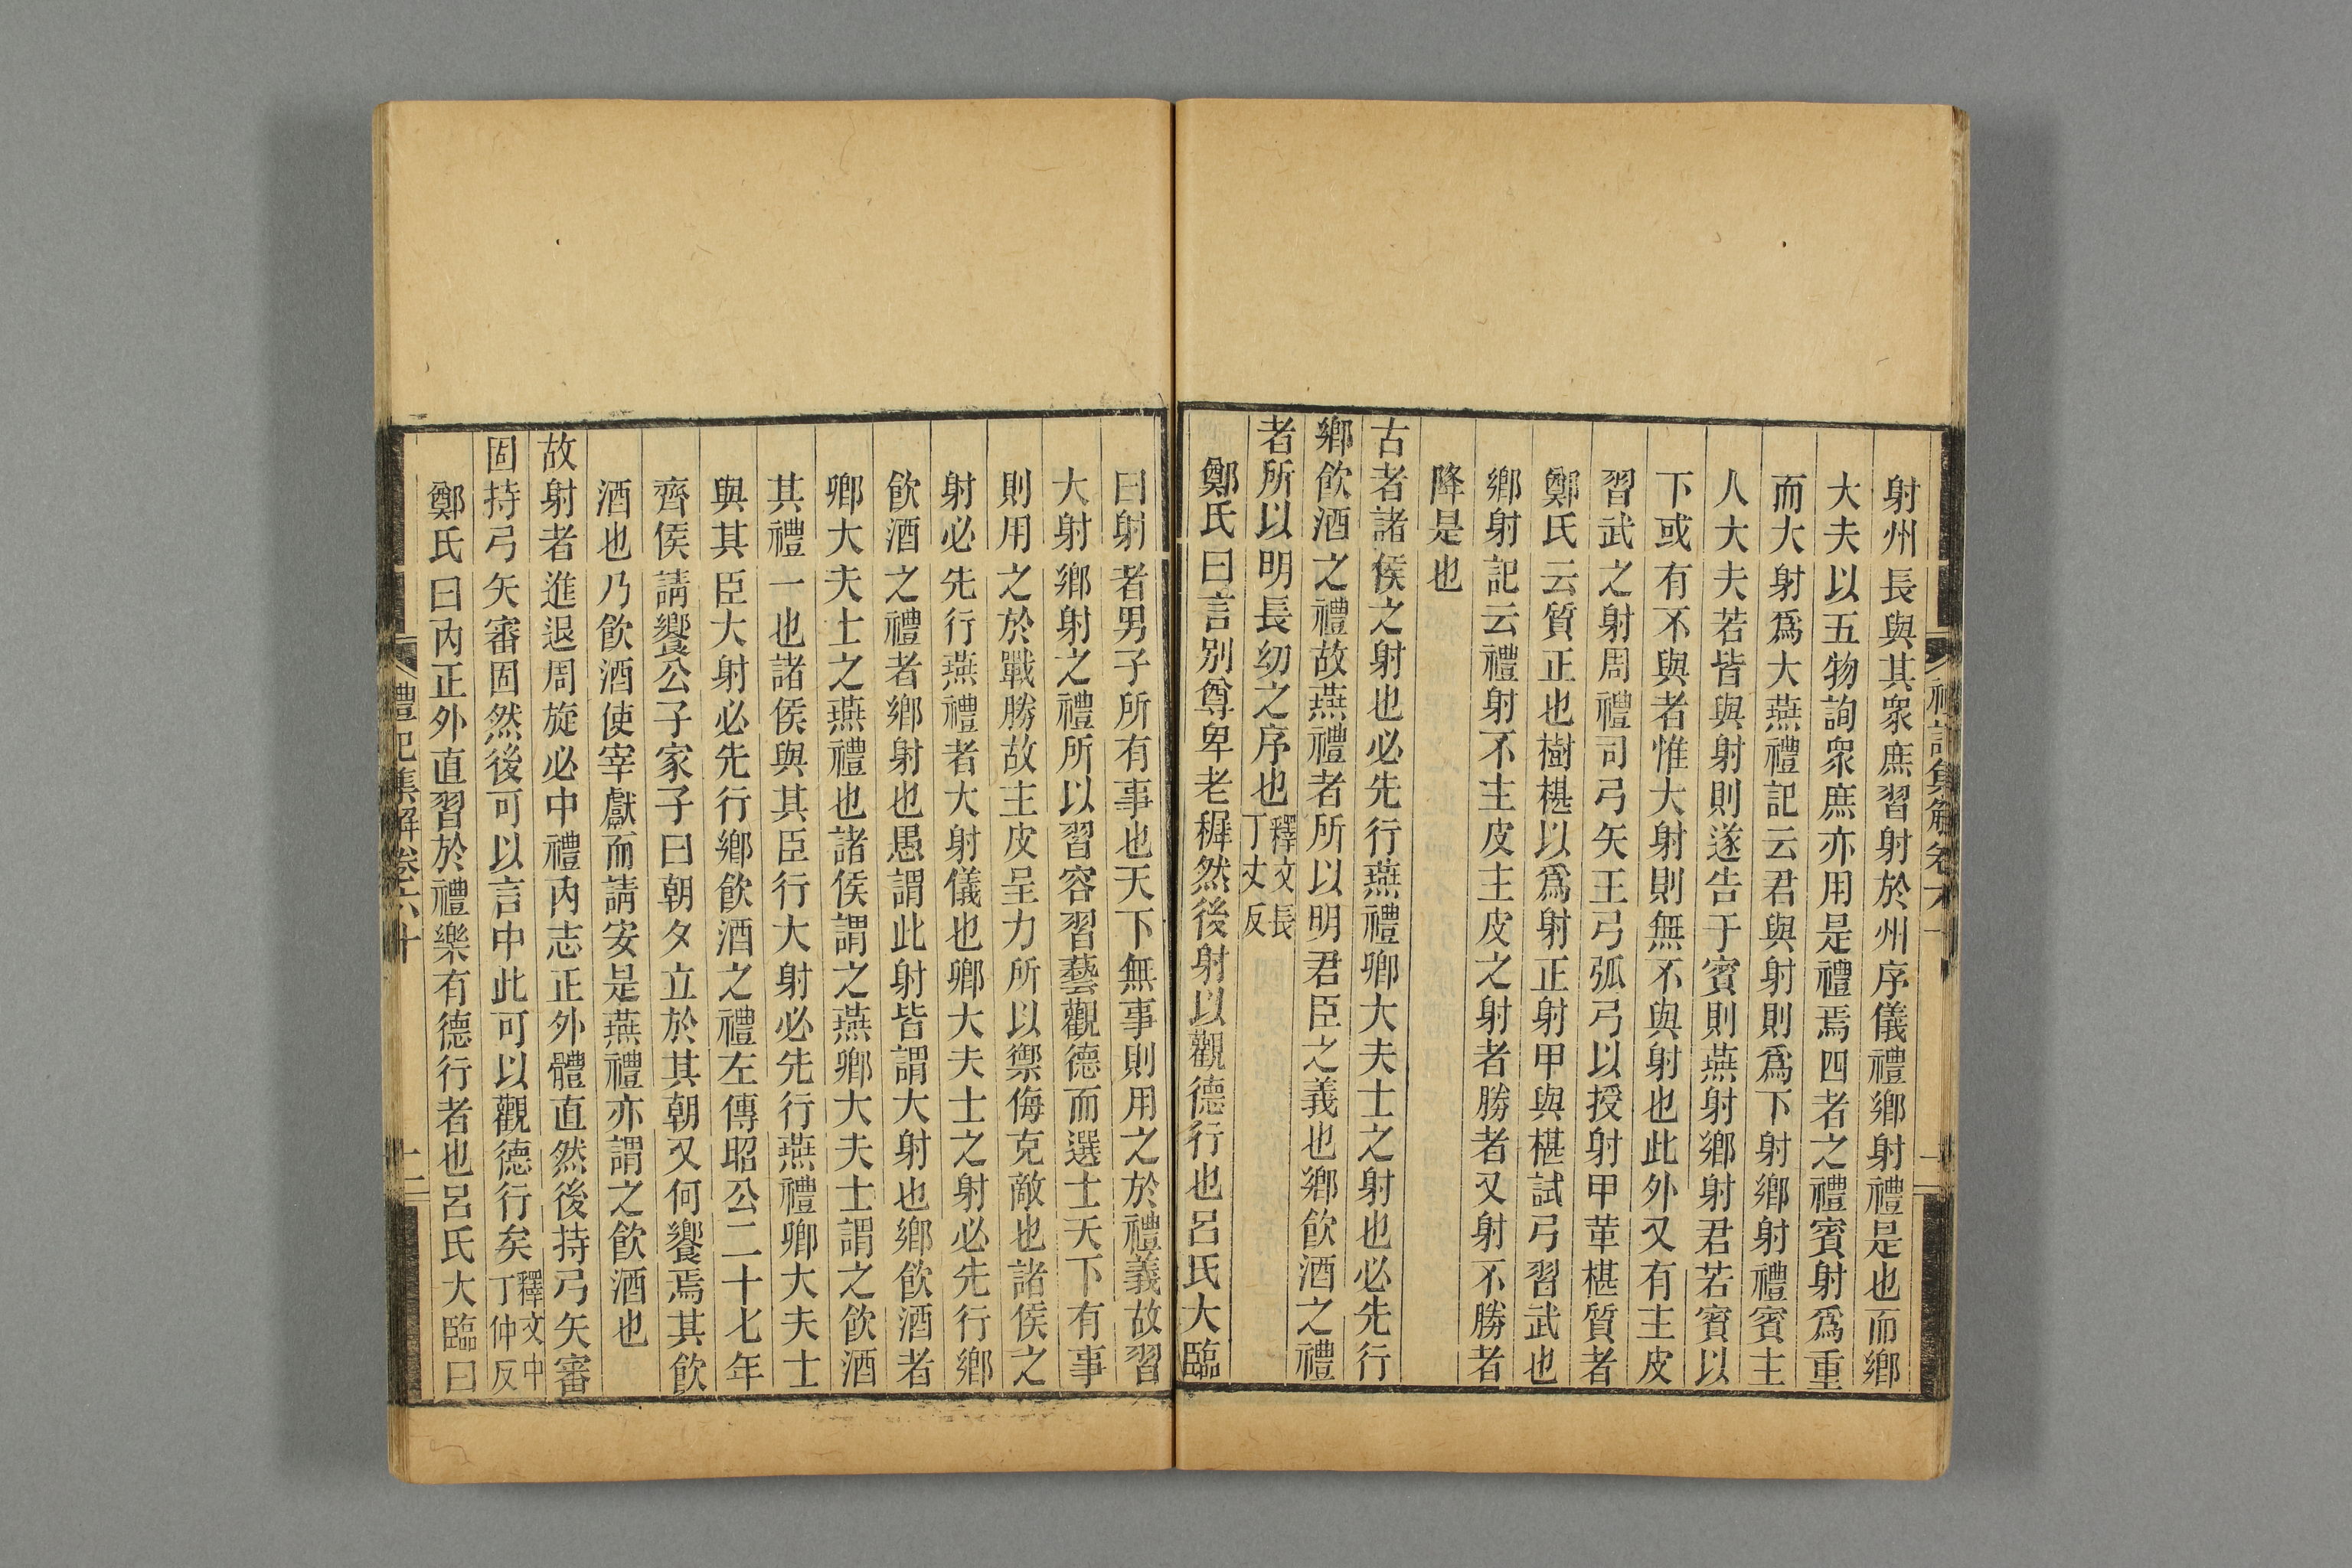 射州長與其衆庶習射於州序儀禮鄉射禮是也而鄉
大夫以五物詢衆庶亦用是禮焉四者之禮賓射爲重
而大射爲大燕禮記云君與射則爲下射鄉射禮賓主
人大夫若皆與射則遂告于賓則燕射鄉射君若賓以
下或有不與者惟大射則無不與射也此外又有主皮
習武之射周禮司弓矢王弓弧弓以授射甲革椹質者
鄭氏云質正也樹椹以爲射正射甲與椹試弓習武也
鄉射記云禮射不主皮主皮之射者勝者又射不勝者
降是也
古者諸侯之射也必先行燕禮卿大夫士之射也必先行
鄉飲酒之禮故燕禮者所以明君臣之義也鄉飲酒之禮
者所以明長幼之序也釋文長丁丈反
鄭氏曰言別尊卑老穉然後射以觀德行也呂氏大臨
曰射者男子所有事也天下無事則用之於禮義故習
大射鄉射之禮所以習容習藝觀德而選士天下有事
則用之於戰勝故主皮呈力所以禦侮克敵也諸侯之
射必先行燕禮者大射儀也卿大夫士之射必先行鄉
飲酒之禮者鄉射也愚謂此射皆謂大射也鄉飲酒者
卿大夫士之燕禮也諸侯謂之燕卿大夫士謂之飲酒
其禮一也諸侯與其臣行大射必先行燕禮卿大夫士
與其臣大射必先行鄉飲酒之禮左傳昭公二十七年
齊侯請饗公子家子曰朝夕立於其朝又何饗焉其飲
酒也乃飲酒使宰獻而請安是燕禮亦謂之飲酒也
故射者進退周旋必中禮內志正外體直然後持弓矢審
固持弓矢審固然後可以言中此可以觀德行矣釋文中丁仲反
鄭氏曰內正外直習於禮樂有德行者也呂氏大臨曰
禮記集解卷六十